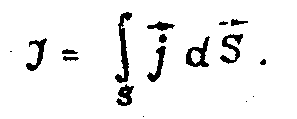 J = ∫_S j⃗ d S⃗ .